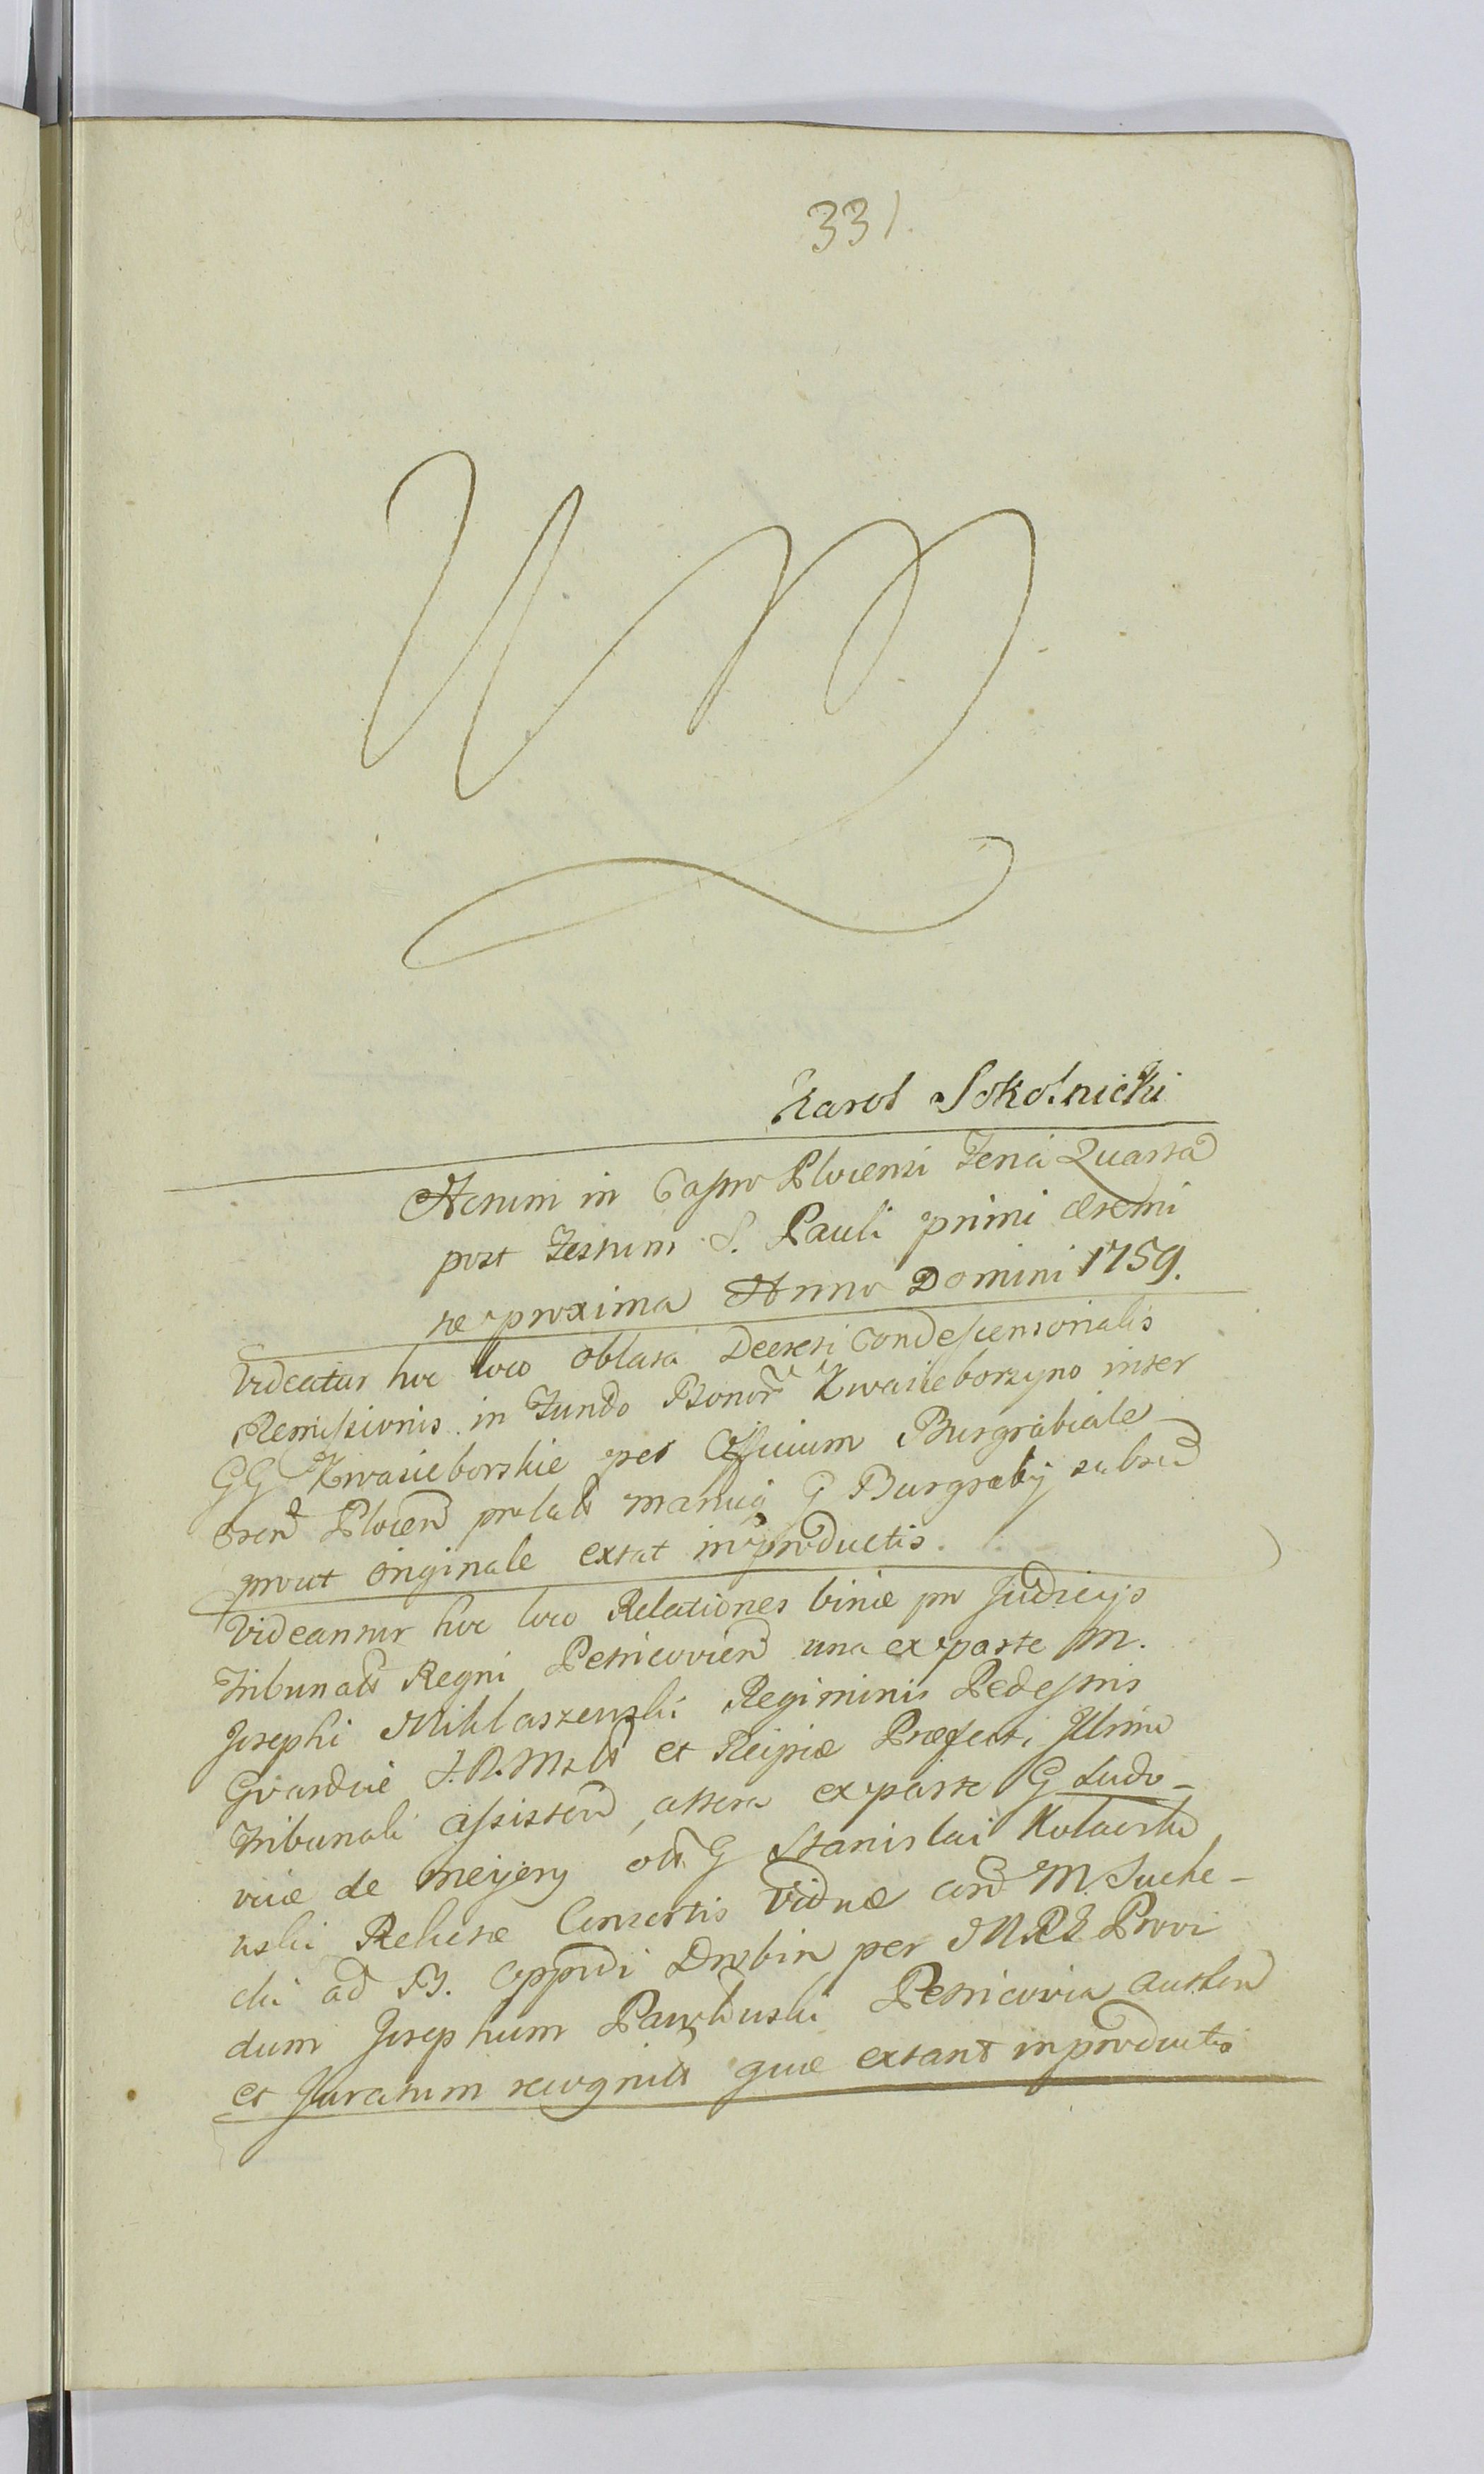 331.
Karol Sokolnicki
Actum in Castro Plocensi Feria Quarta
post Festum S. Pauli primi Eremi
tæ proxima Anno Domini 1759.
Videatur hoc loco oblata Decreti Condescensorialis
Remissionis in Fundo Bonor Kwasieborzyno inter
GG Kwasieborskie per Officium Burgrabiale
Plocen prolati manuq G Burgrabij subscr
prout originale extat in productis.
Videantur hoc loco Relationes binæ pro Judicijs
Tribunalis Regni Petricovien una ex parte M.
Josephi Miklaszewski Regiminis Pedestris
Gvardiæ et Reipcæ Præfecti
Tribunali assisten, altera ex parte G Ludo-
vicæ de Meijery olim G Stanislai
Relictæ Consortis Viduæ M. Suche-
cki ad B. Oppidi Drobin per Provi
dum Josephum Petricovia
et Juratum recognitæ quæ extant in productis